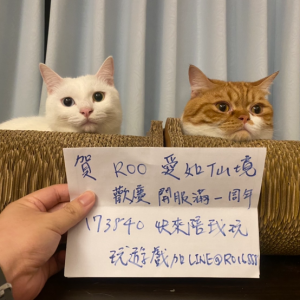 賀 ROO 愛如Tui境
歡慶 開服滿一周年
173840 快來陪我玩
玩遊戲加LINE@RO16888